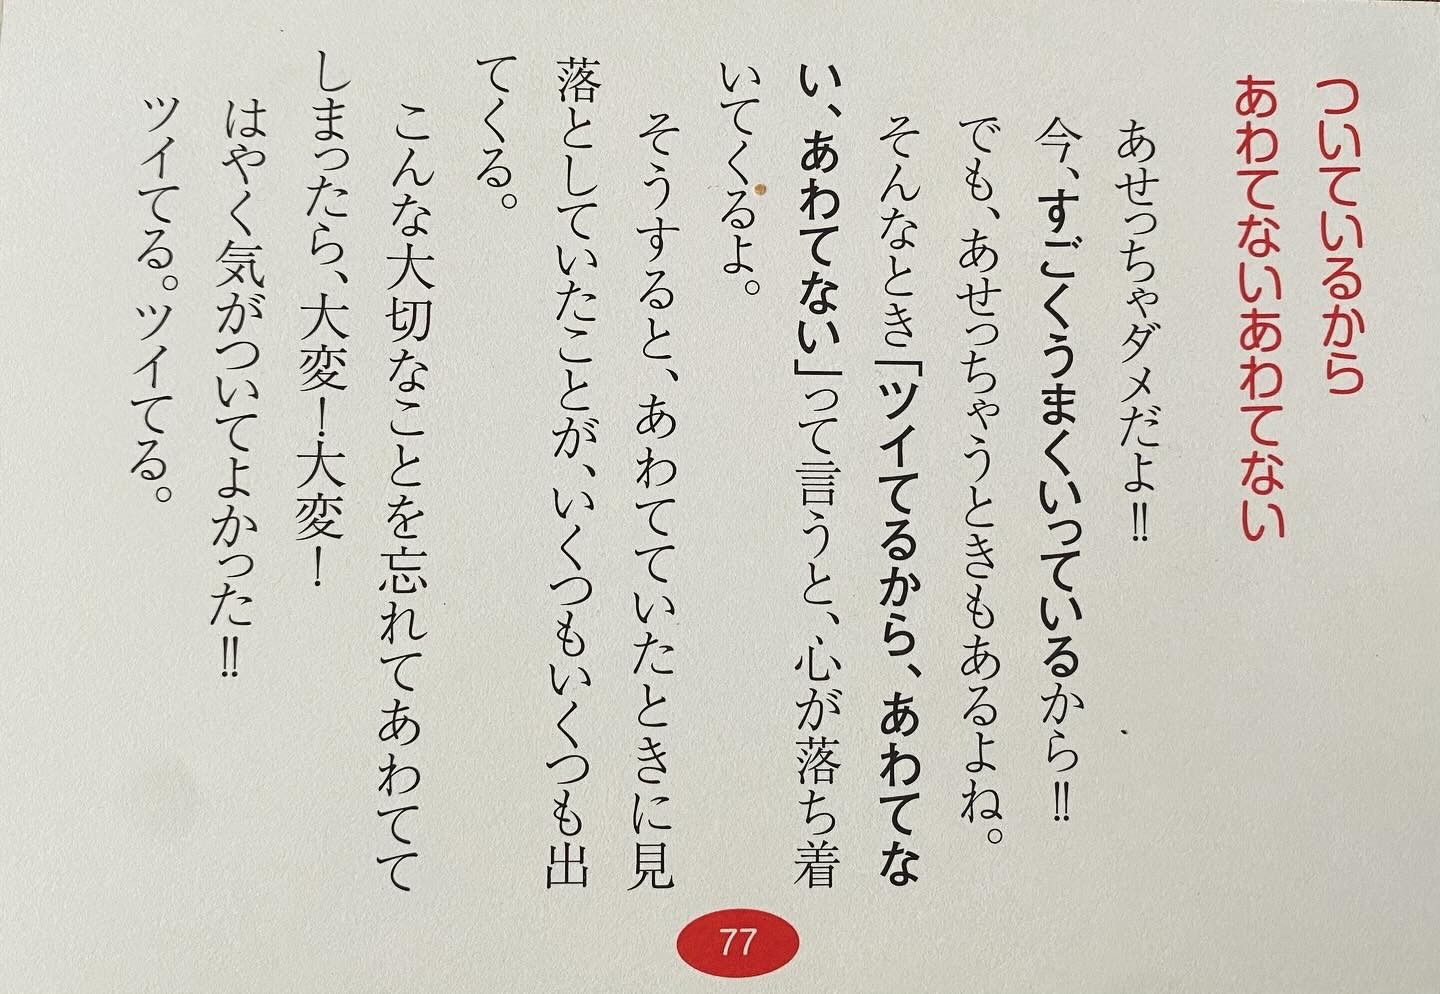 ついているから
あわてないあわてない
あせっちゃダメだよ!!
今、すごくうまくいっているから!!
でも、あせっちゃうときもあるよね。
そんなとき「ツイてるから、あわてな
い、あわてない」って言うと、心が落ち着
いてくるよ。
そうすると、あわてていたときに見
落としていたことが、いくつもいくつも出
てくる。
こんな大切なことを忘れてあわてて
しまったら、大変！大変！
はやく気がついてよかった!!
ツイてる。ツイてる。
77